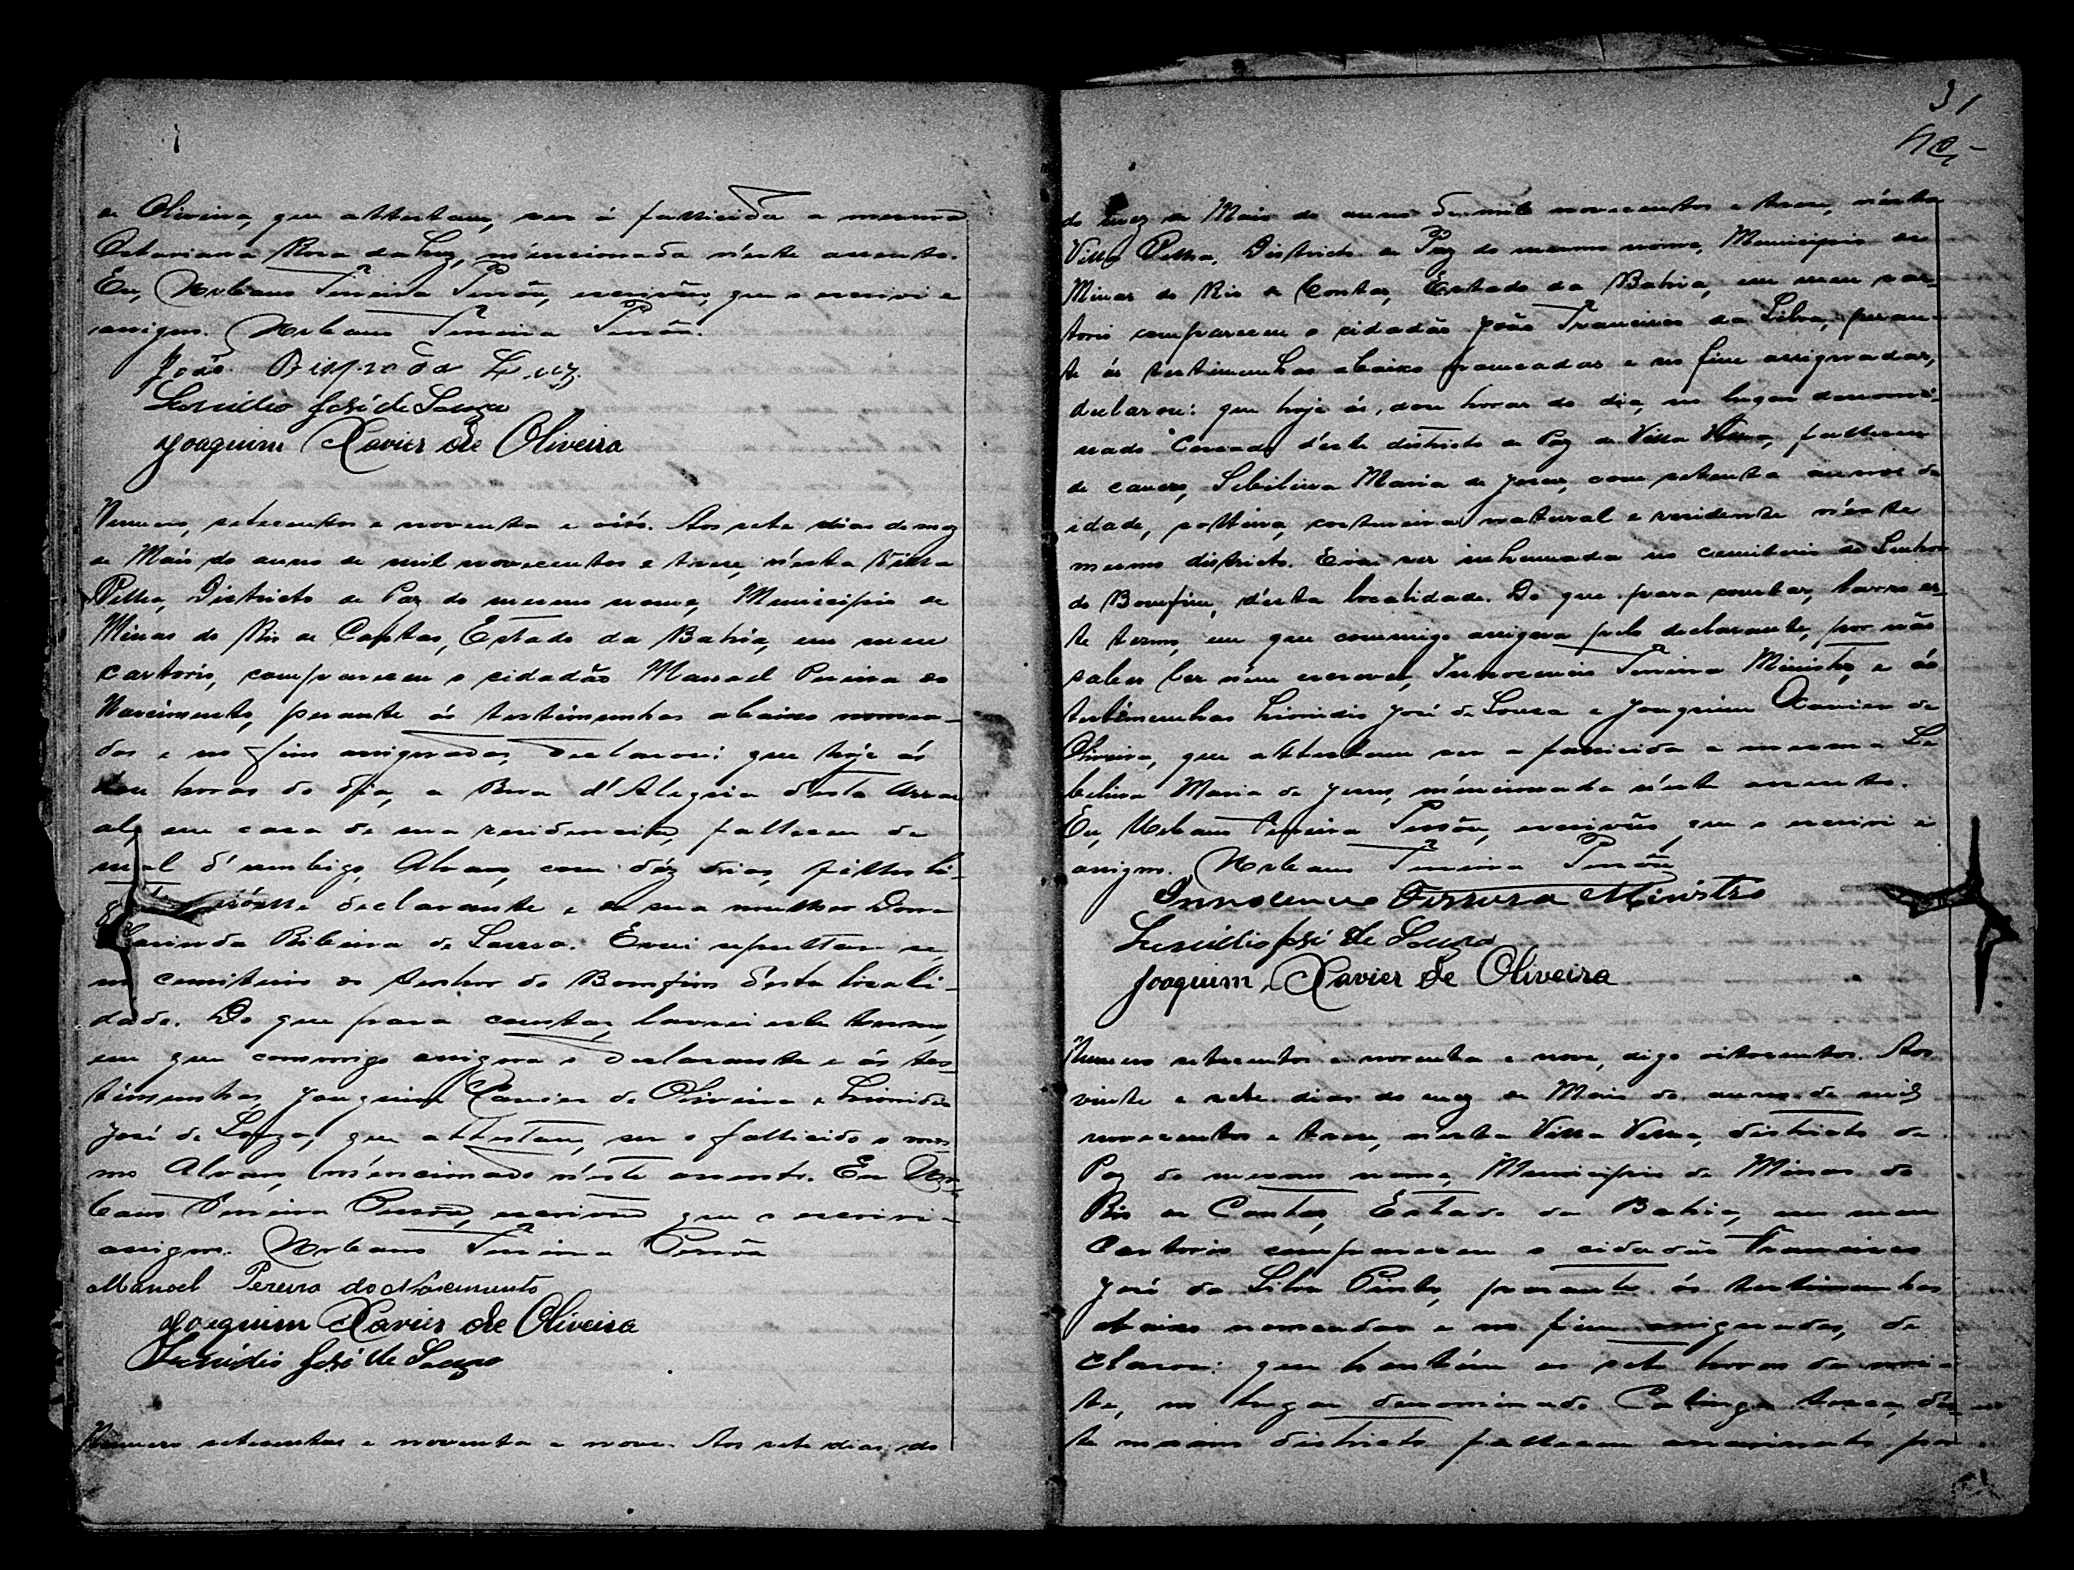 de Oliveira, que attestam, ser á fallecida a mesma
Octaviana Rosa da Luz, méncionada n'éste assento.
Eu, Urbano Ferreira Pessôa, escrivão, que o escrivi e
assigno. Urbano Ferreira Pessôa.
João Bispo da Luz.
Leonidio José de Souza
Joaquim Xavier de Oliveira
Numero, setecentos e noventa e oitó. Aos sete dias do mez
de Maio do anno de mil novecentos e treze, n'ésta Villa
Vélha, Districto de Paz do mesmo nome, Municipio de
Minas do Rio de Contas, Estado da Bahia, em meu
cartorio, compareceu o cidadão Manoel Pereira do
Nascimento, perante ás testimunhas abaixo nomea-
das e no fim assignadas, declarou: que hoje ás
horas do dia, a Rua d'Alegria d'esta Arrai
al, em casa de sua residencia, falleceu de
mal d'umbigo, Alvaro, com déz dias, filho li-
declarante e de sua mulher Dona
Ribeiro de Souza. E vai sepultar se,
no cemiterio do Senhor do Bomfim d'ésta locali-
dade. Do que para constar, lavrei este termo,
em que commigo assigna o declarante e ás tes-
timunhas Joaquim Xavier de Oliveira e Leonidio
José de Souza, que attestam, ser o fallecido o mes-
mo Alvaro, méncionado n'éste assento. Eu Ur-
bano Ferreira Pessôa, escrivão que o escrivi e
assigno. Urbano Ferreira Pessôa
Manoel Pereira do Nascimento
Joaquim Xavier de Oliveira
Leonidio José de Souza
Numero setecentos e noventa e nove. Aos sete dias do
31
do mez de Maio do anno de mil novecentos e treze, n'ésta
Villa Vélha, Districto de Paz do mesmo nome, Municipio de
Minas do Rio de Contas, Estado da Bahia, em meu car-
torio compareceu o cidadão João Francisco da Silva, peran-
te ás testimunhas abaixo nomeadas e no fim assignadas,
declarou: que hoje ás, horas do dia, no lugar denomi-
nado d'este districto de Paz de Villa Vélha, falleceu
de cancro, Maria de Jesus, com setenta annos de
idade, solteira, costureira natural e residente n'éste
mesmo districto. E vai ser inhumada no cemiterio do Senhor
do Bomfim, d'ésta localidade. Do que para constar, lavro es-
te termo, em que commigo assigna pelo declarante, por não
saber ler nem escrever, Innocencio Ferreira Ministro, e ás
testimunhas Leonidio José de Souza e Joaquim Xavier de
Oliveira, que attestam ser a fallecida a mesma
Maria de Jesus, méncionada n'éste assento.
Eu, Urbano Ferreira Pessôa, escrivão que o escrivi e
assigno. Urbano Ferreira Pessôa
Innocencio Ferreira Ministro
Leonidio José de Souza
Joaquim Xavier de Oliveira
Numero setecentos e noventa e nove, digo oitocentos. Aos
vinte e sete dias do mez de Maio do anno de mil
novecentos e treze, n'ésta Villa Vélha, districto de
Paz do mesmo nome, Municipio de Minas do
Rio de Contas, Estado da Bahia, em meu
Cartorio compareceu o cidadão Francisco
José da Silva Pinto, perante ás testimunhas
abaixo nomeadas e no fim assignadas, de
clarou: que hontém as sete horas da noi-
te, no lugar denominado Catinga d'es-
te mesmo districto falleceu assassinado por